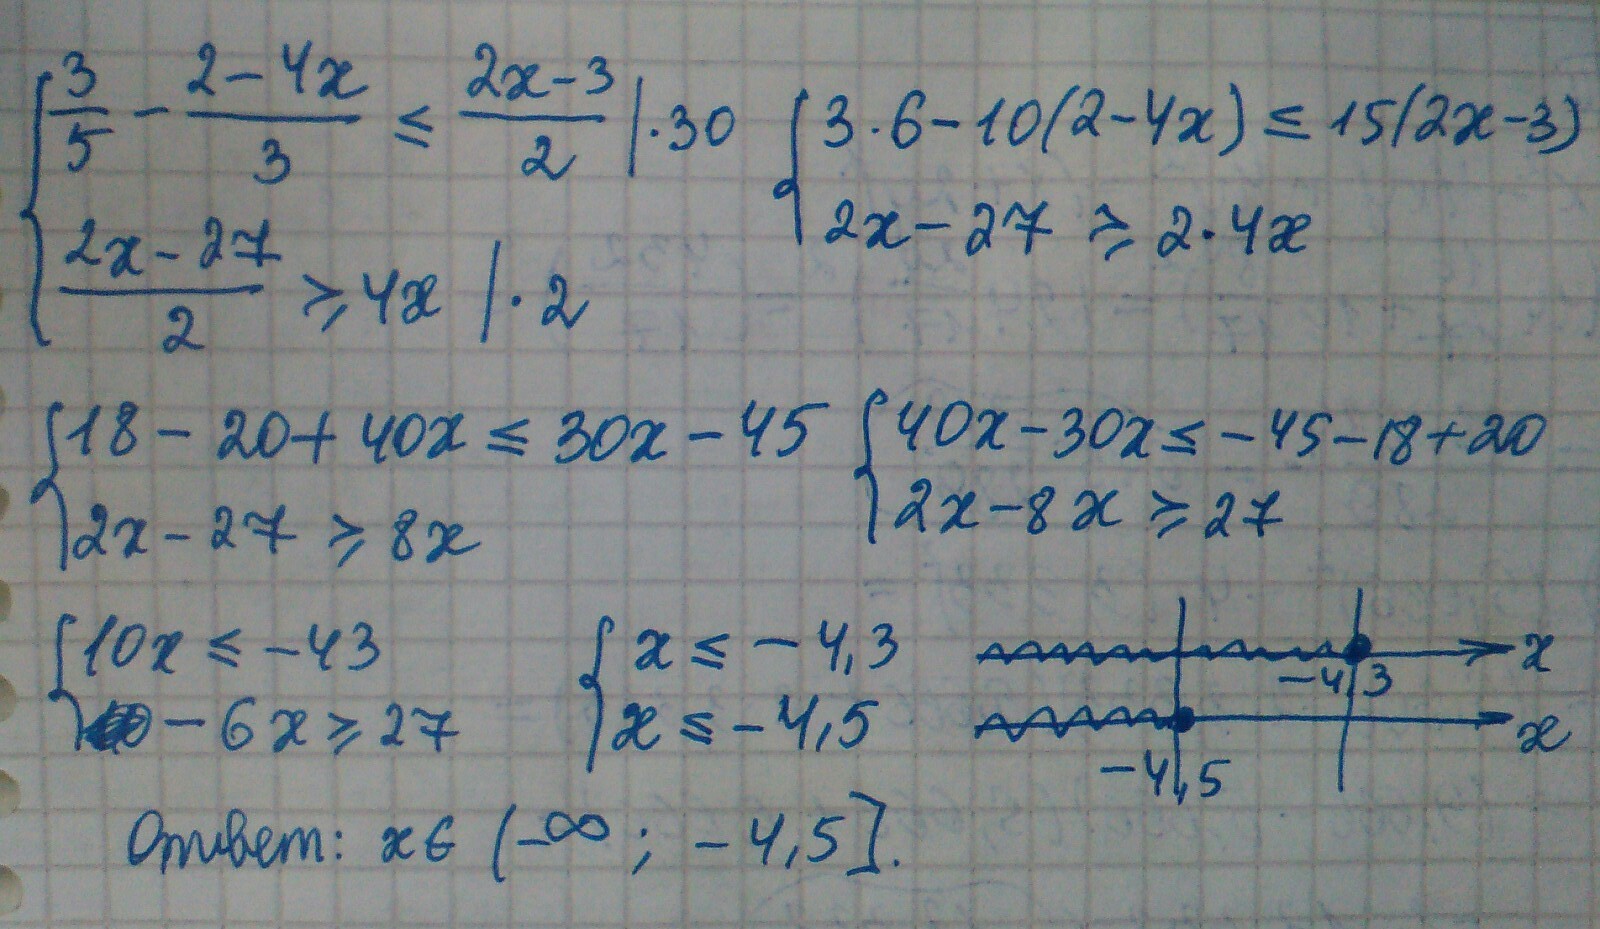 { 3/5 - (2-4x)/3 ≤ (2x-3)/2 | ·30
{ (2x-27)/2 ≥ 4x | ·2
{ 3·6-10(2-4x) ≤ 15(2x-3)
{ 2x-27 ≥ 2·4x
{ 18-20+40x ≤ 30x-45
{ 2x-27 ≥ 8x
{ 40x-30x ≤ -45-18+20
{ 2x-8x ≥ 27
{ 10x ≤ -43
{ -6x ≥ 27
{ x ≤ -4,3
{ x ≤ -4,5
-4,3 x
-4,5 x
Ответ: x∈(-∞; -4,5].